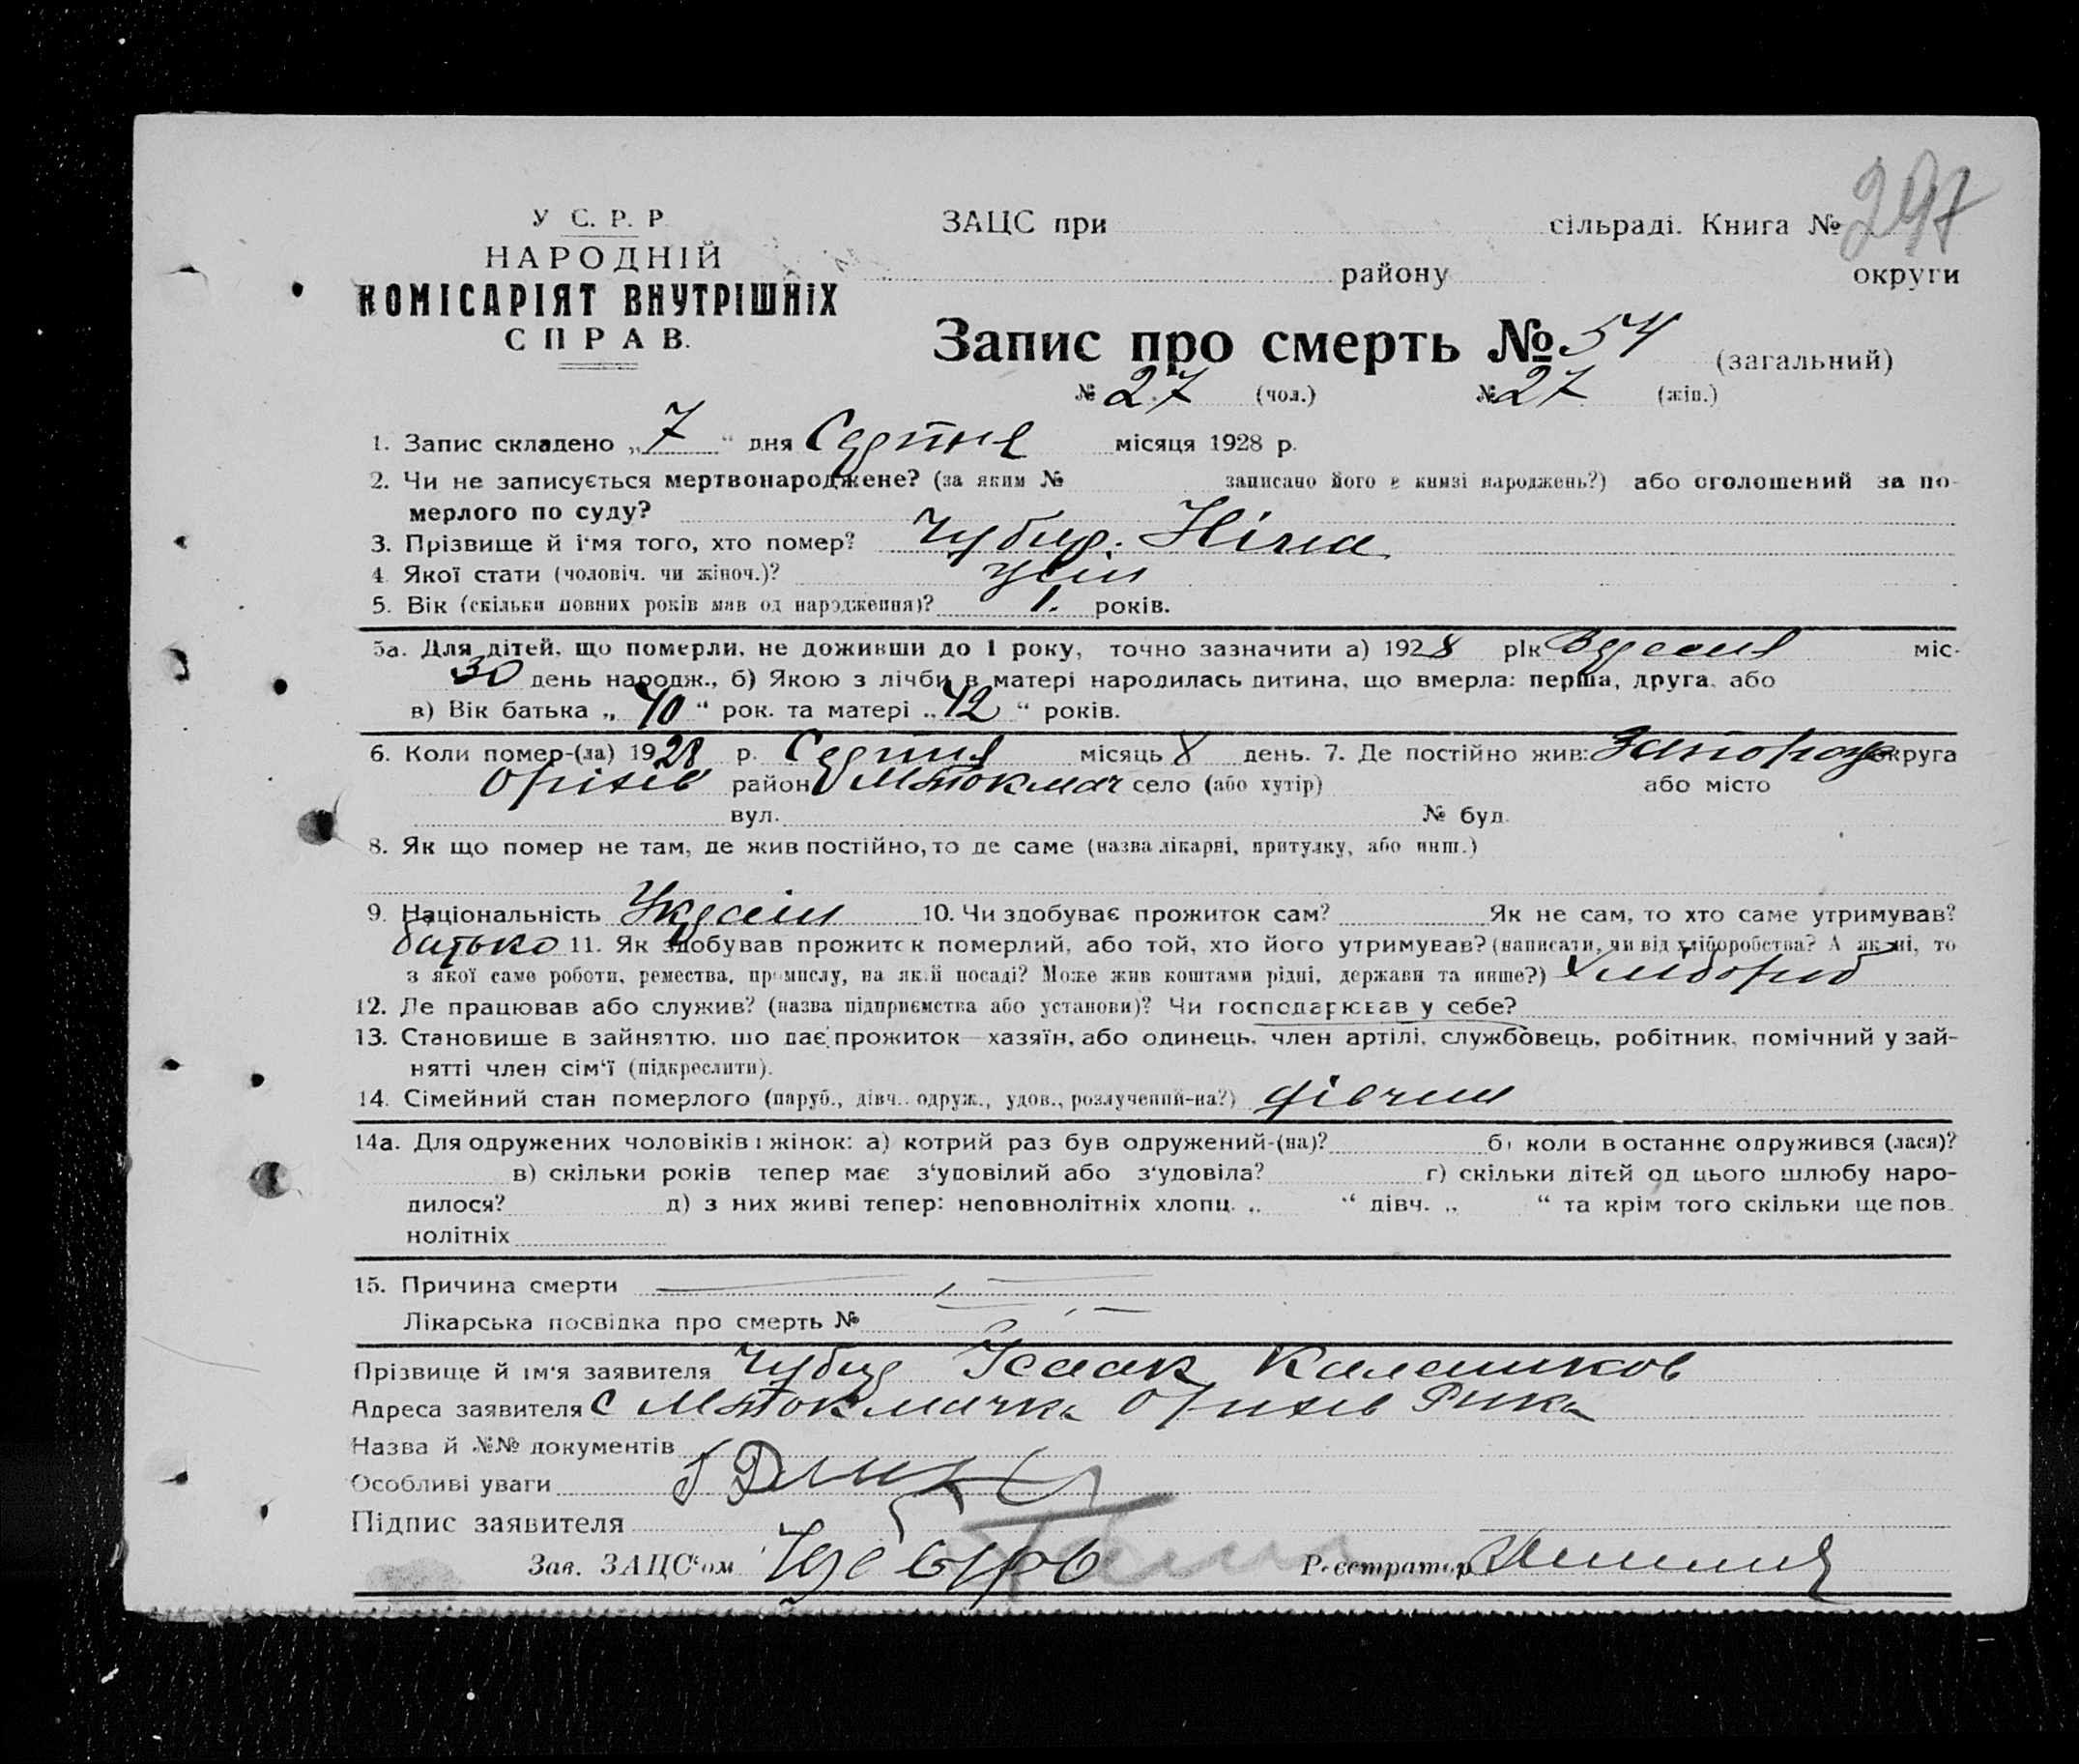 297
У С. Р. Р.
НАРОДНІЙ
КОМІСАРІЯТ ВНУТРІШНІХ
СПРАВ.
ЗАЦС при сільраді. Книга №
району округи
Запис про смерть № 54 (загальний)
№ 27 (чол.) № 27 (жін.)
1. Запис складено „ 7 “ дня Серпня місяця 1928 р.
2. Чи не записується мертвонароджене? (за яким № записано його в книзі народжень?) або оголошений за по-
мерлого по суду?
3. Прізвище й і'мя того, хто помер? Чубир. Ніна
4. Якої стати (чоловіч. чи жіноч.)? жін
5. Вік (скільки повних років мав од народження)? 1. років.
5а. Для дітей, що померли, не доживши до 1 року, точно зазначити а) 1928 рік міс-
30 день народж., б) Якою з лічби в матері народилась дитина, що вмерла: перша, друга або
в) Вік батька „ 40 “ рок. та матері „ 42 “ років.
6. Коли помер-(ла) 1928 р. Серпня місяць 8 день. 7. Де постійно жив: Запорож округа
Оріхів район М Токмач село (або хутір) або місто
вул. № буд.
8. Як що помер не там, де жив постійно, то де саме (назва лікарні, притулку, або инш.)
9. Національність Україн 10. Чи здобуває прожиток сам? Як не сам, то хто саме утримував?
батько 11. Як здобував прожиток померлий, або той, хто його утримував? (написати, чи від хліборобства? А як ні, то
з якої саме роботи, ремества, промислу, на якій посаді? Може жив коштами рідні, держави та инше?) Хлібороб
12. Де працював або служив? (назва підприємства або установи)? Чи господарював у себе?
13. Становище в зайняттю, що дає прожиток—хазяїн, або одинець, член артілі, службовець, робітник, помічний у зай-
нятті член сім'ї (підкреслити).
14. Сімейний стан померлого (паруб., дівч. одруж., удов., розлучений-на?) дівчин
14а. Для одружених чоловіків і жінок: а) котрий раз був одружений-(на)? б) коли востаннє одружився (лася)?
в) скільки років тепер має з'удовілий або з'удовіла? г) скільки дітей од цього шлюбу наро-
дилося? д) з них живі тепер: неповнолітніх хлопц. „ “ дівч. „ “ та крім того скільки ще пов-
нолітніх
15. Причина смерти
Лікарська посвідка про смерть №
Прізвище й ім'я заявителя Чубир Ісаак
Адреса заявителя с М Токмачка Оріхів Рика
Назва й №№ документів
Особливі уваги
Підпис заявителя
Зав. ЗАЦС'ом Реєстратор